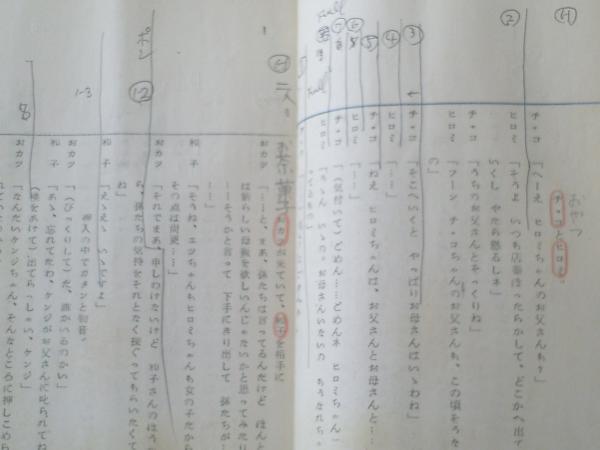 おやつ
チャコとヒロミ。
チャコ 「へーえ ヒロミちゃんのお父さんも?」
ヒロミ 「そうよ いつも店番ほったらかして、どこかへ出て
いくし やたら怒るしネ」
チャコ 「うちのお父さんとそっくりね」
ヒロミ 「フーン チャコちゃんのお父さんも、この頃そうな
の」
チャコ 「そこへいくと やっぱりお母さんはいゝわね」
ヒロミ 「……」
チャコ 「ねえ ヒロミちゃんは、お父さんとお母さんと…
ヒロミ 「……」
チャコ 「(気付いて)ごめん……ごめんネ ヒロミちゃん」
ヒロミ 「うゝん いゝの。お母さんいないの もうなれちゃ
二人
お菓子
おカツがきていて、和子を相手に
おカツ 「……と、まあ、孫たちは言ってるんだけど ほんと
は新らしい母親を欲しいんじゃないかと思ってみたり
……そうかと言って 下手にきり出して 孫たちが…
……」
和子 「そうね、エツちゃんもヒロミちゃんも女の子だから
その点は尚更……」
おカツ 「それでまあ、申しわけないけど 和子さんのほう
ら、孫たちの気持をそれとなく探ぐってもらいたくて
ね」
和子 「えゝえゝ いゝですよ」
押入の中でカタンと物音。
おカツ 「(びっくりして)だ、誰かいるのかい」
和子 「あゝ、忘れてたわ、ケンジがお父さんに叱られてね
(襖をあけて)出てらっしゃい、ケンジ」
おカツ 「なんだいケンジちゃん、そんなところに押しこめら